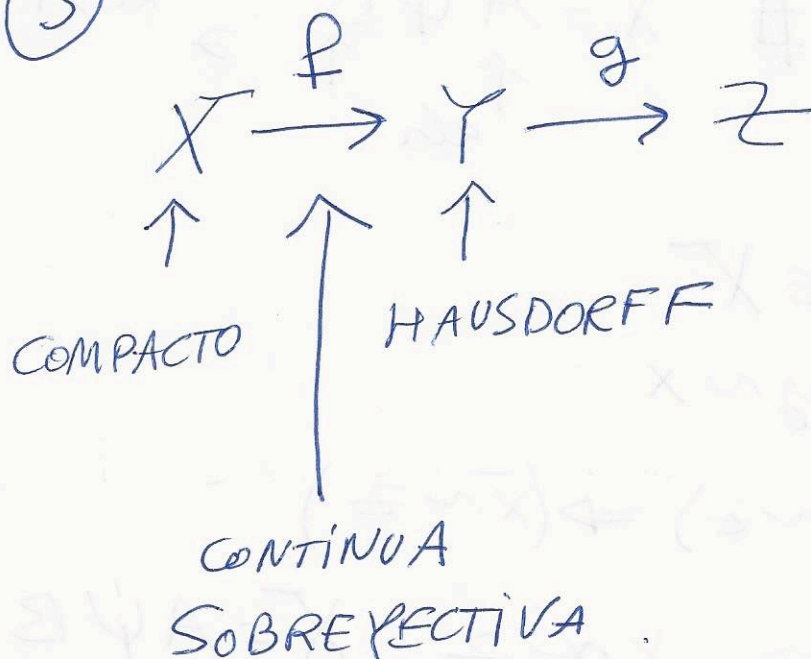 3
f g
X → Y → Z
↑ ↑ ↑
COMPACTO HAUSDORFF
CONTINUA
SOBREYECTIVA.